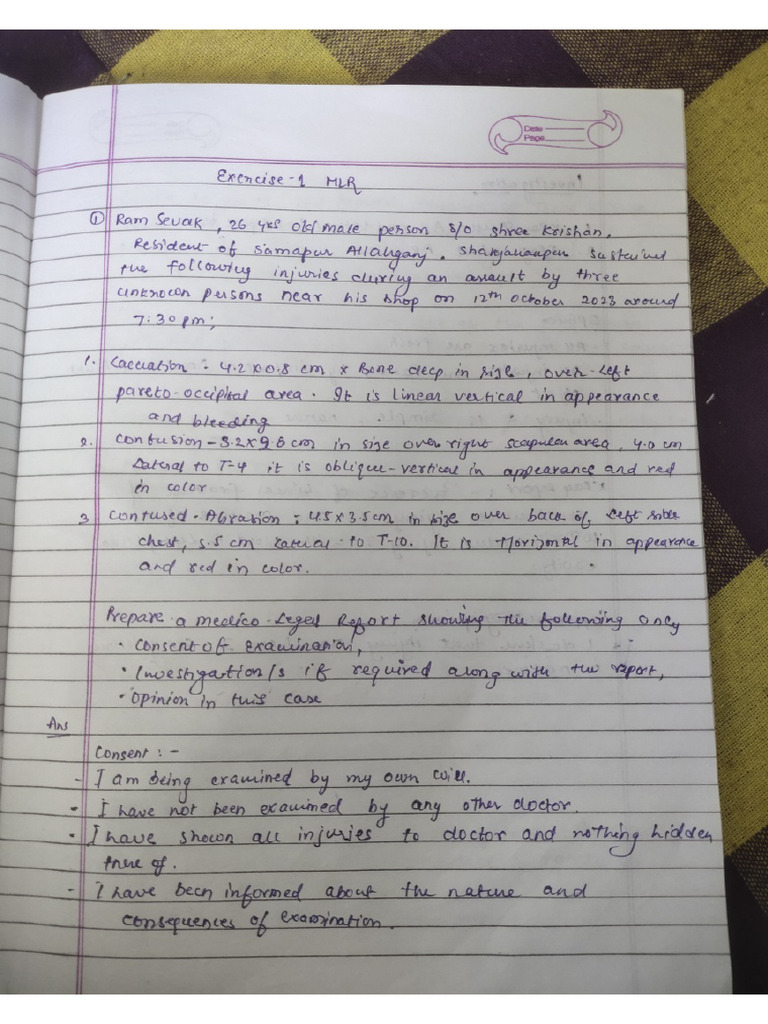 Date
Page
Exercise-1 MLR
① Ram Sevak, 26 yrs old male person s/o shree Krishan,
Resident of Samapur Allahganj, Shahjahanpur sustained
the following injuries during an assault by three
unknown persons near his shop on 12th october 2023 around
7:30 pm;
1. Laceration : 4.2 x 0.8 cm x Bone deep in size, over left
pareto-occipital area. It is linear vertical in appearance
and bleeding
2. Contusion - 3.2 x 9.6 cm in size over right scapular area, 4.0 cm
Lateral to T-4 it is oblique-vertical in appearance and red
in color
3 Contused. Abration : 4.5 x 3.5 cm in size over back of left side
chest, 5.5 cm lateral to T-10. It is Horizontal in appearance
and red in color.
Prepare a medico-Legel Report showing the following only
• Consent of examination,
• Investigation/s if required along with the report,
• Opinion in this case
Ans
Consent : -
- I am being examined by my own will.
• I have not been examined by any other doctor.
• I have shown all injuries to doctor and nothing hidden
there of.
- I have been informed about the nature and
consequences of examination.